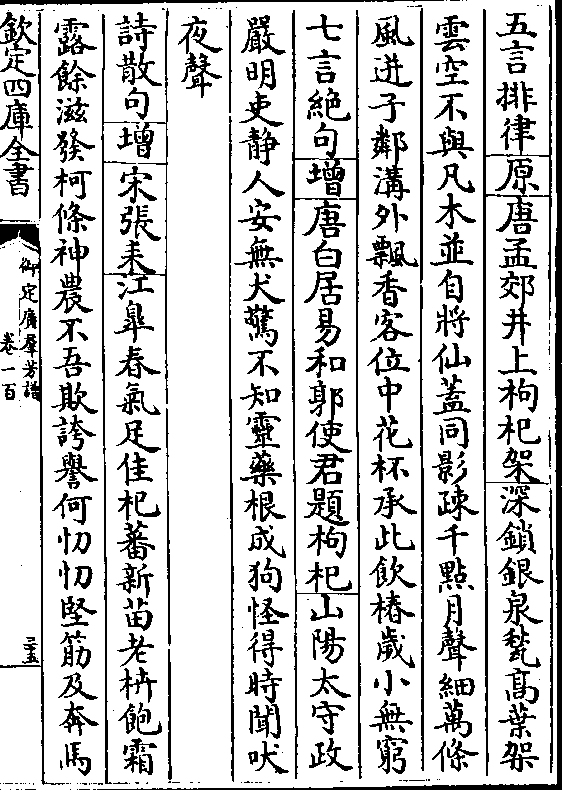 五言排律原唐孟郊井上枸杞架深鎖銀泉甃髙葉架
雲空不與凡木並自將仙蓋同影疎千點月聲細萬條
風迸子鄰溝外飄香客位中花杯承此飲椿歲小無窮
七言絶句增唐白居易和郭使君題枸杞山陽太守政
嚴明吏静人安無犬驚不知靈藥根成狗怪得時聞吠
夜聲
詩散句增宋張耒江臯春氣足佳杞蕃新苗老枿飽霜
露餘滋發柯條神農不吾欺誇譽何忉忉堅筋及奔馬
欽定四庫全書
御定廣羣芳譜
卷一百
三五